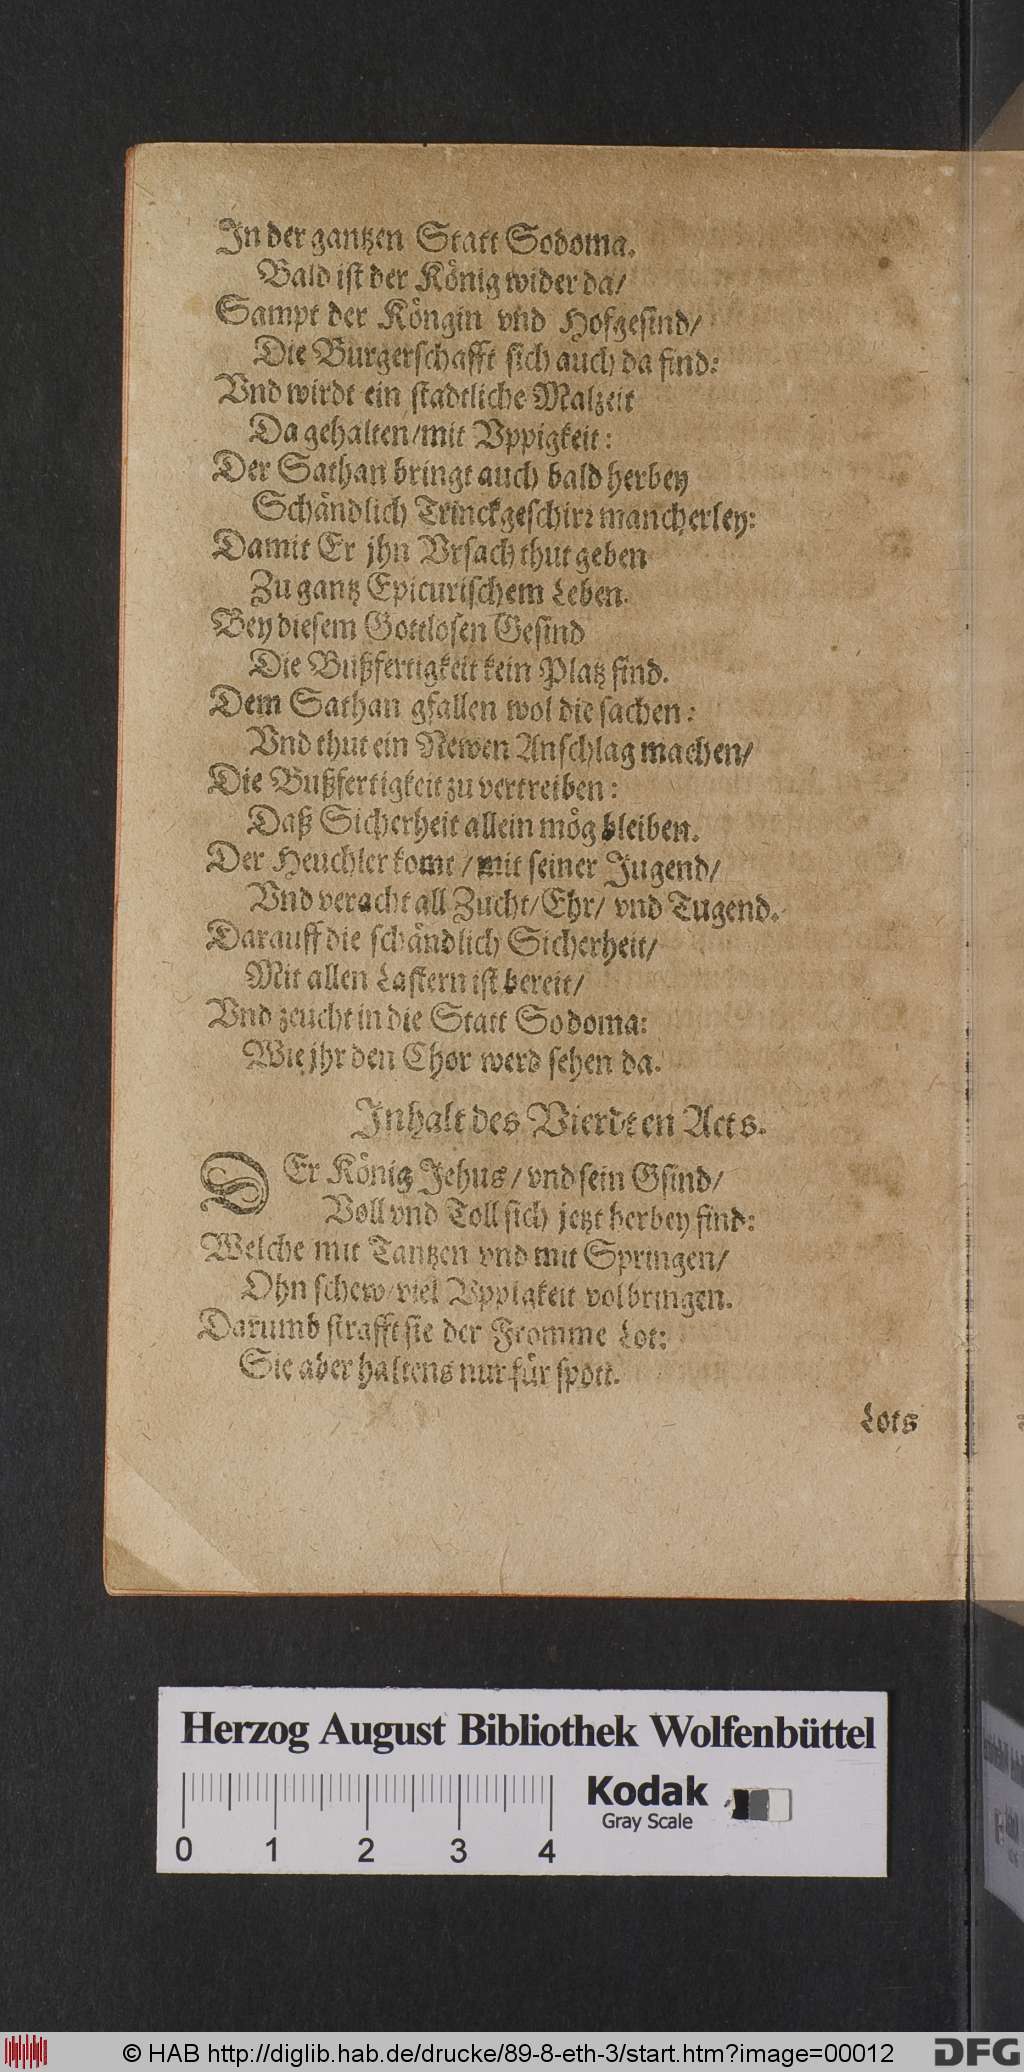 In der gantzen Statt Sodoma.
Bald ist der König wider da/
Sampt der Köngin vnd Hofgesind/
Die Burgerschafft sich auch da find:
Vnd wirdt ein stadtliche Malzeit
Da gehalten/mit Vppigkeit:
Der Sathan bringt auch bald herbey
Schändlich Trinckgeschirr mancherley:
Damit Er jhn Vrsach thut geben
Zu gantz Epicurischem Leben.
Bey diesem Gottlosen Gesind
Die Bußfertigkeit kein Platz find.
Dem Sathan gfallen wol die sachen:
Vnd thut ein Newen Anschlag machen/
Die Bußfertigkeit zu vertreiben:
Daß Sicherheit allein mög bleiben.
Der Heuchler komt/mit seiner Jugend/
Vnd veracht all Zucht/Ehr/ vnd Tugend.
Darauff die schändlich Sicherheit/
Mit allen Lastern ist bereit/
Vnd zeucht in die Statt Sodoma:
Wie jhr den Chor werd sehen da.
Inhalt des Vierdten Acts.
DEr König Jehus/vnd sein Gsind/
Voll vnd Toll sich jetzt herbey find:
Welche mit Tantzen vnd mit Springen/
Ohn schew/viel Vppigkeit volbringen.
Darumb strafft sie der Fromme Lot:
Sie aber haltens nur für spott.
Lots
Herzog August Bibliothek Wolfenbüttel
Kodak
Gray Scale
0 1 2 3 4
© HAB http://diglib.hab.de/drucke/89-8-eth-3/start.htm?image=00012
DFG